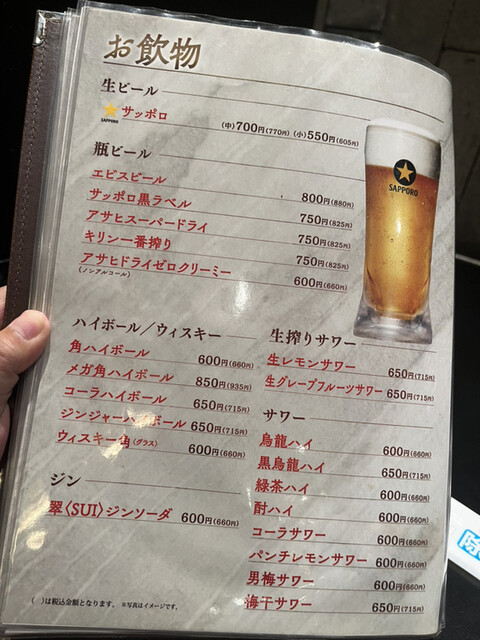 お飲物
生ビール
サッポロ (中)700円(770円) (小)550円(605円)
SAPPORO
瓶ビール
エビスビール 800円(880円)
サッポロ黒ラベル 750円(825円)
アサヒスーパードライ 750円(825円)
キリン一番搾り 750円(825円)
アサヒドライゼロクリーミー 600円(660円)
(ノンアルコール)
SAPPORO
ハイボール/ウィスキー
角ハイボール 600円(660円)
メガ角ハイボール 850円(935円)
コーラハイボール 650円(715円)
ジンジャーハイボール 650円(715円)
ウィスキー角(グラス) 600円(660円)
ジン
翠〈SUI〉ジンソーダ 600円(660円)
生搾りサワー
生レモンサワー 650円(715円)
生グレープフルーツサワー 650円(715円)
サワー
烏龍ハイ 600円(660円)
黒烏龍ハイ 650円(715円)
緑茶ハイ 600円(660円)
酎ハイ 600円(660円)
コーラサワー 600円(660円)
パンチレモンサワー 600円(660円)
男梅サワー 600円(660円)
梅干サワー 650円(715円)
( )は税込金額となります。 ※写真はイメージです。